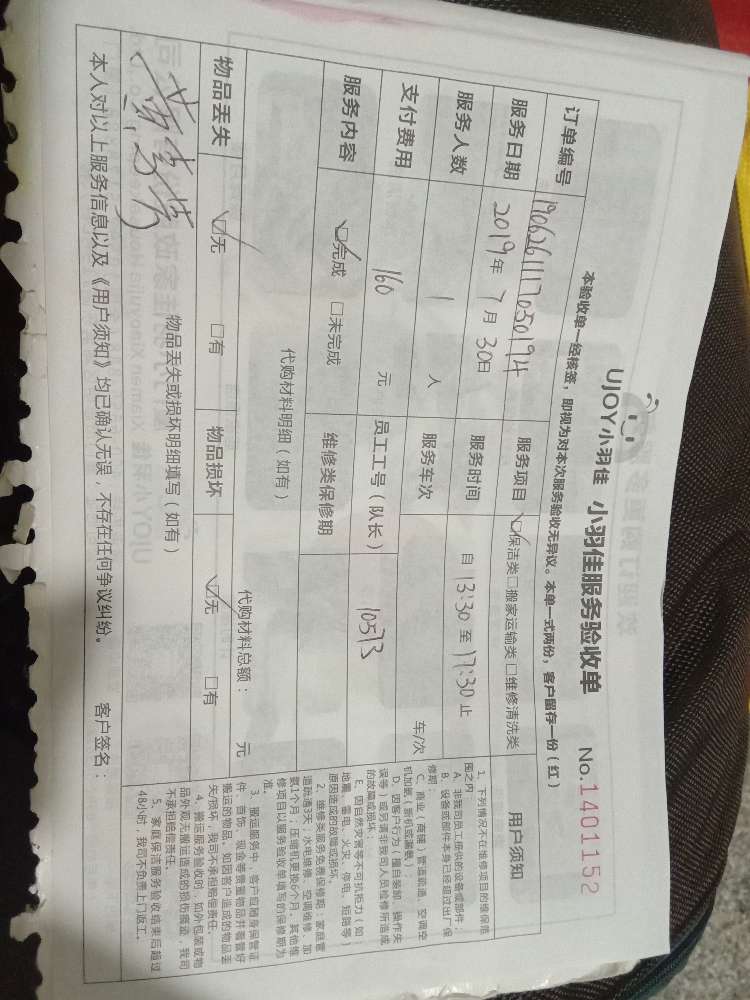 UJOY小羽佳 小羽佳服务验收单 No.1401152
本验收单一经核签，即视为对本次服务验收无异议。本单一式两份，客户留存一份（红）
订单编号 19062611170501914 服务项目 ☑保洁类□搬家运输类□维修清洗类
服务日期 2019年7月30日 服务时间 自13:30至17:30止
服务人数 1 人 服务车次 车/次
支付费用 160 元 员工工号（队长） 10573
服务内容 ☑完成 □未完成 维修类保修期
代购材料明细（如有） 代购材料总额： 元
物品丢失 ☑无 □有 物品损坏 ☑无 □有
物品丢失或损坏明细填写（如有）
本人对以上服务信息以及《用户须知》均已确认无误，不存在任何争议纠纷。 客户签名：
用户须知
1、下列情况不在维修项目的维保范
围之内：
A、非我司员工提供的设备或部件；
B、设备或部件本身已经超过出厂保
修期；
C、商业（商铺）管道疏通、空调空
机加氨（新机或漏氨）；
D、因客户行为（擅自装卸、操作失
误等）或另请非我司人员检修所造成
的故障或损坏；
E、因自然灾害等不可抗拒力（如：
地震、雷电、火灾、停电、短路等）
原因造成的故障或损坏。
2、维修类服务免费保修期：家庭管
道疏通3天；水电维修、空调维修、加
氨1个月；压缩机更换6个月。其他维
修项目以服务验收单填写的保修期为
准。
3、搬运服务中，客户应随身保管证
件、首饰、现金等贵重物品并看管好
搬运的物品。如因客户造成的物品丢
失/损坏，我司不承担赔偿责任。
4、搬运服务验收时，如外包装或物
品外观无搬运造成的损伤痕迹，我司
不承担赔偿责任。
5、家庭保洁服务验收结束后超过
48小时，我司不负责上门返工。